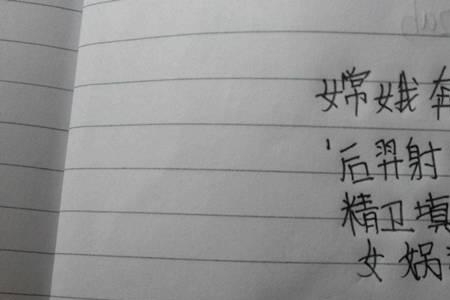 嫦娥
后羿射
精卫填
女娲